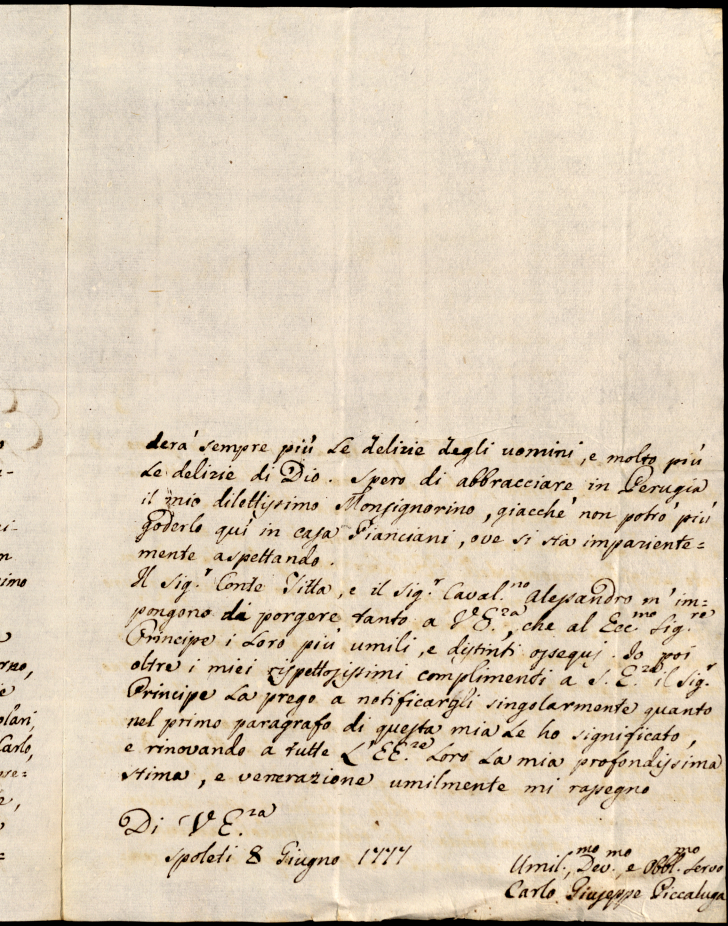 derà sempre più le delizie degli uomini, e molto più
le delizie di Dio. Spero di abbracciare in Perugia
il mio dilettissimo Monsignorino, giacchè non potrò più
goderlo quì in casa Pianciani, ove si sta impaziente=
mente aspettando.
Il Sig.r Conte Titta, e il Sig.r Caval.no Alessandro m'im-
pongono di porgere tanto a V.E.za, che al Ecc.mo Sig.re
Principe i loro più umili, e distinti ossequj. Io poi
oltre i miei rispettosissimi complimenti a S.E.za il Sig.r
Principe La prego a notificargli singolarmente quanto
nel primo paragrafo di questa mia Le ho significato,
e rinovando a tutte L'EE.ze Loro La mia profondissima
stima, e venerazione umilmente mi rassegno
Di V.E.za
Spoleti 8 Giugno 1777
Umil.mo, Dev.mo, e Obbl.mo Servo
Carlo Giuseppe Piccaluga
rno,
olari,
Carlo,